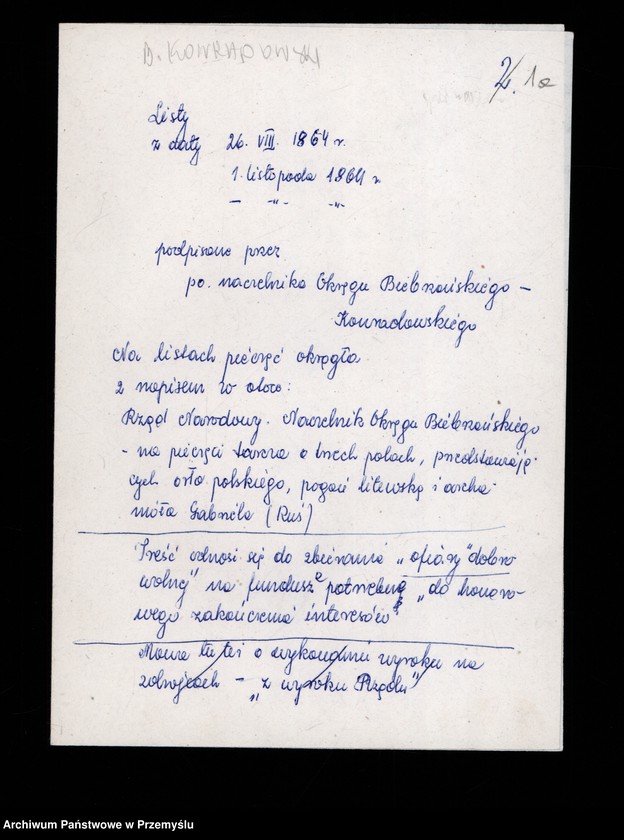 B. KONRADOWSKI
2/. 1a
Listy
z daty 26. VIII. 1864 r.
1. listopada 1864 r.
— -"- -"-
podpisane przez
po. naczelnika Okręgu Bielzańskiego –
Konradowskiego
Na listach pieczęć okrągła
z napisem w otoce:
Rząd Narodowy. Naczelnik Okręgu Bielzańskiego
- na pieczęci tarcza o trzech polach, przedstawiają-
cych orła polskiego, pogoń litewską i archa-
nioła Gabriela (Ruś)
Treść odnosi się do zbierania „ofiary" dobro
wolnej" na fundusz potrzebny „do honoro-
wego zakończenia interesów"
Mowa tu też o wykonaniu wyroku na
zdrajcach – „z wyroku Rządu"
Archiwum Państwowe w Przemyślu